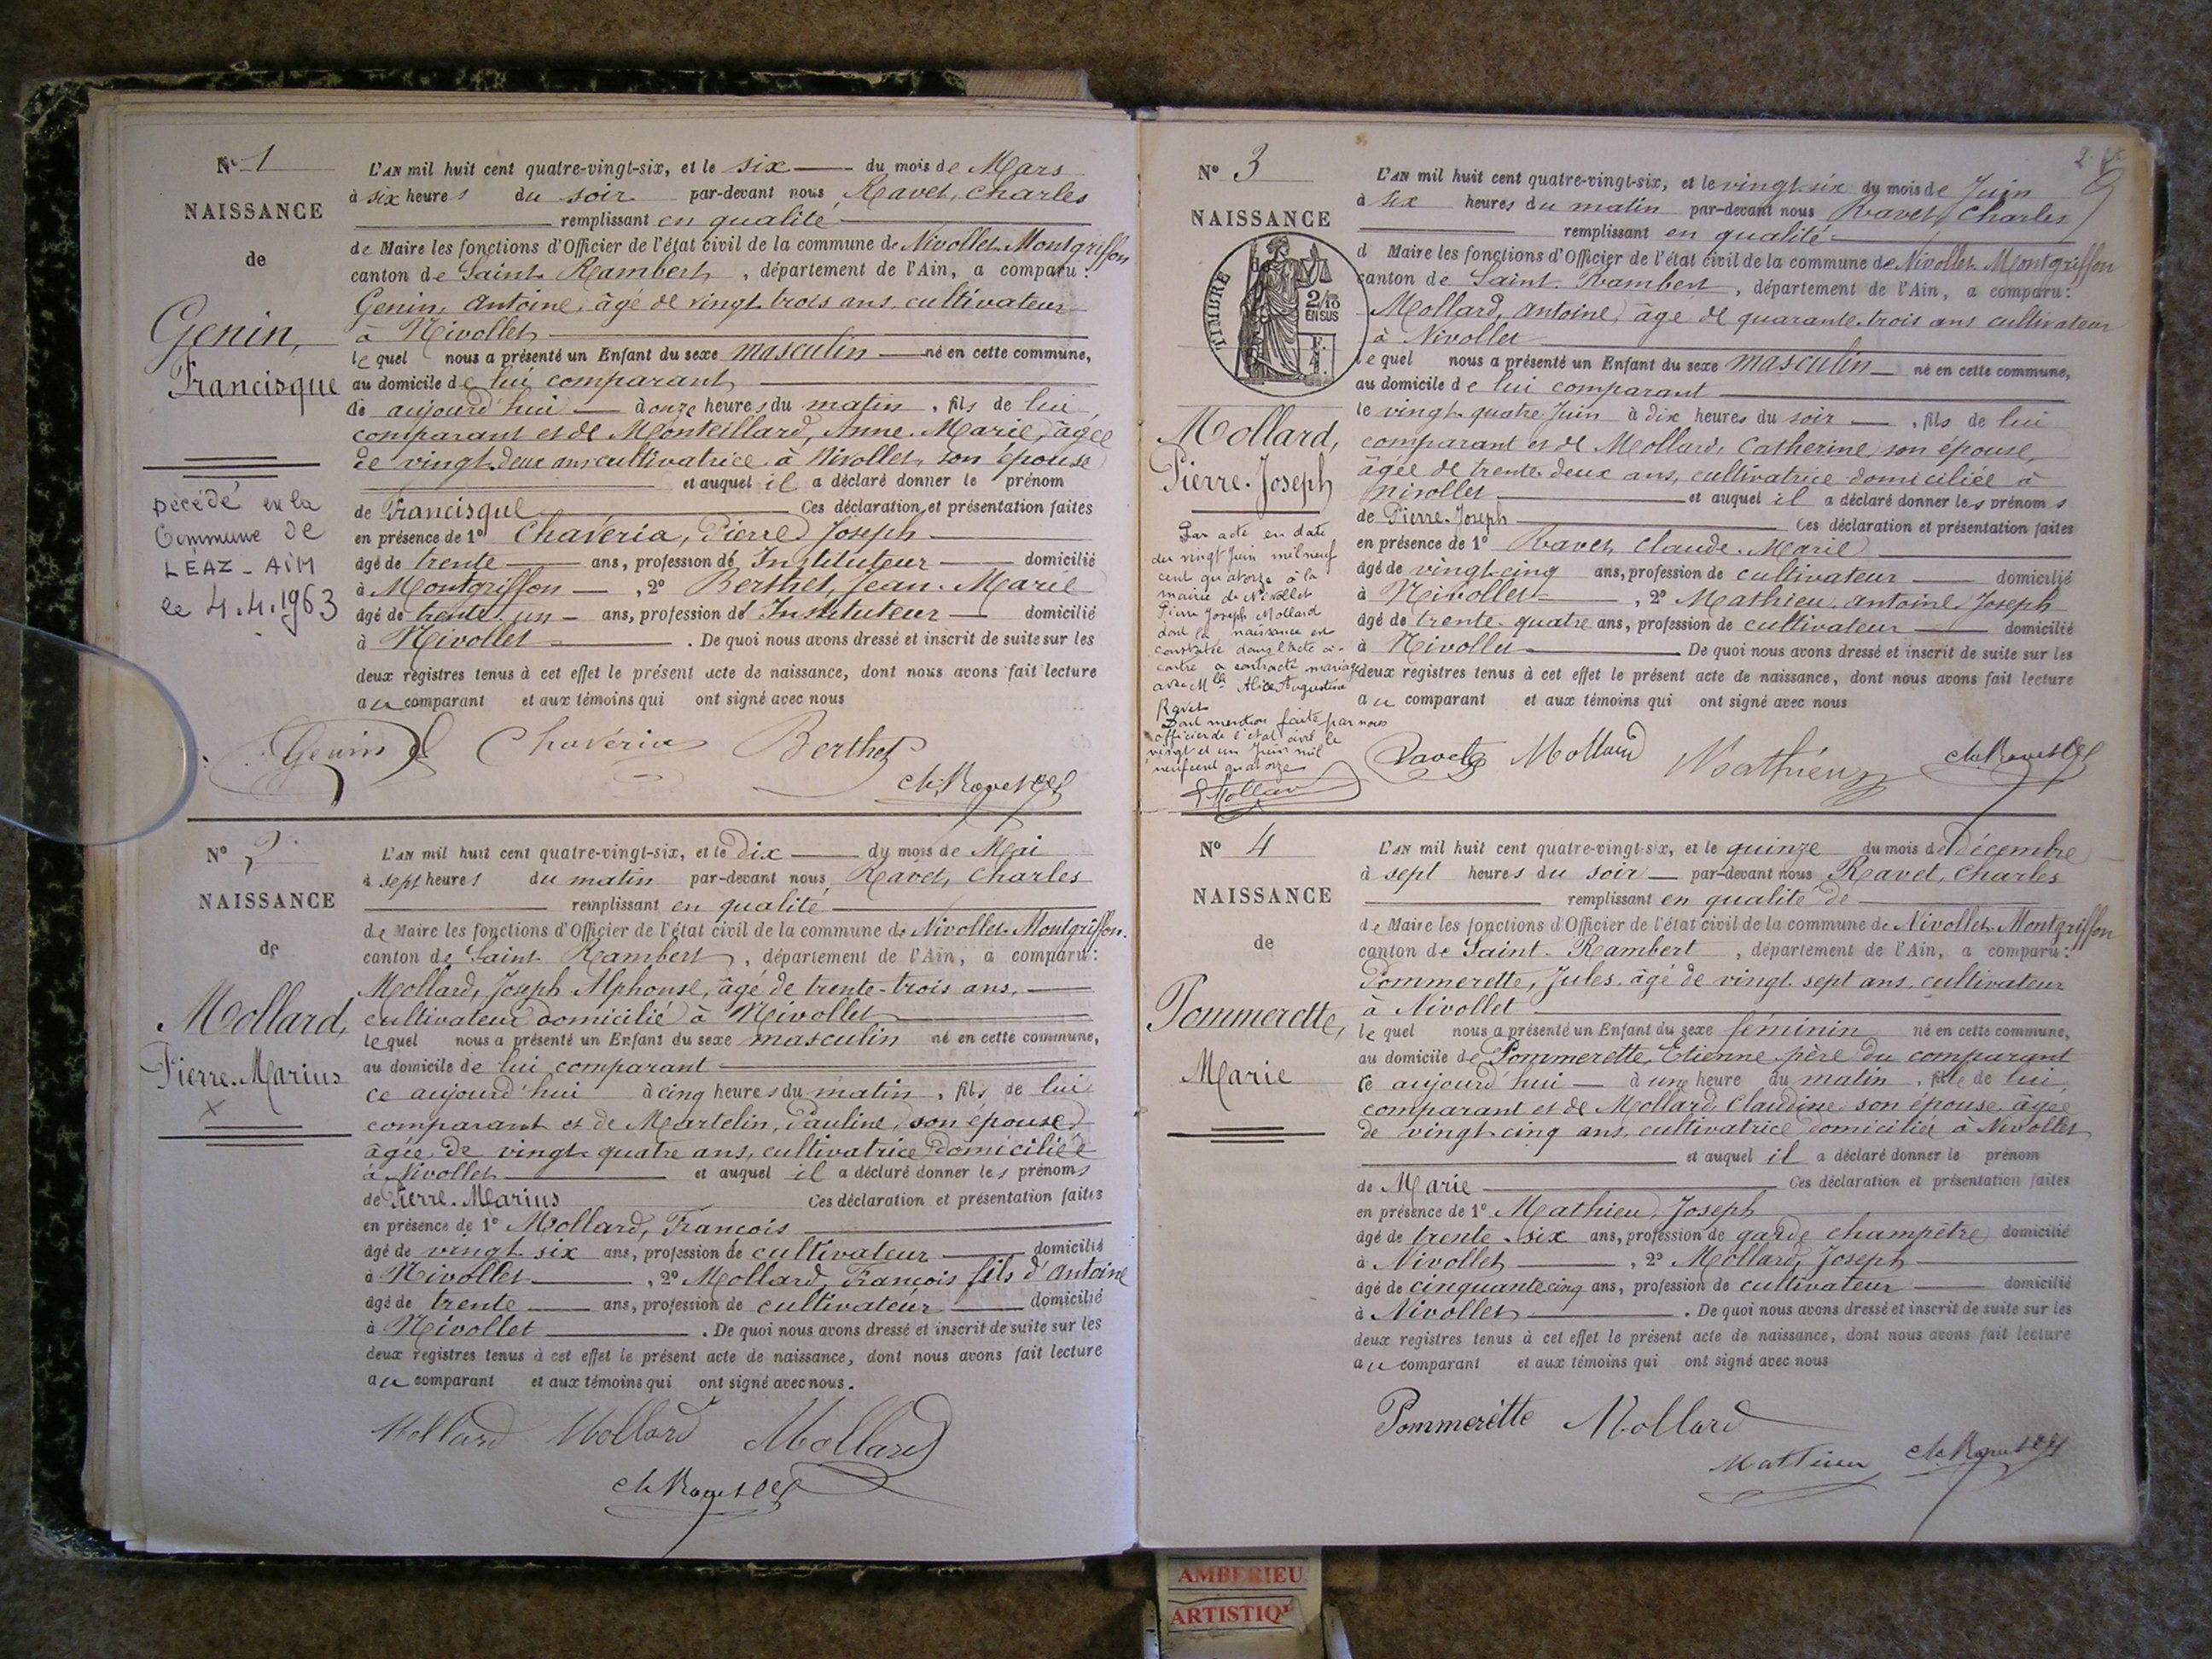 N° 1
NAISSANCE
de
Genin,
Francisque
Décédé en la
Commune de
LÉAZ - AIN
le 4.4.1963
L'AN mil huit cent quatre-vingt-six, et le six du mois de Mars
à six heures du soir par-devant nous Ravet, Charles
remplissant en qualité
de Maire les fonctions d'Officier de l'état civil de la commune de Nivollet-Montgriffon
canton de Saint-Rambert, département de l'Ain, a comparu :
Genin, Antoine, âgé de vingt-trois ans, cultivateur
à Nivollet
lequel nous a présenté un Enfant du sexe masculin né en cette commune,
au domicile de lui comparant
ce aujourd'hui à onze heures du matin, fils de lui
comparant et de Monteillard, Anne-Marie, âgée
de vingt-deux ans cultivatrice à Nivollet, son épouse
et auquel il a déclaré donner le prénom
de Francisque Ces déclaration et présentation faites
en présence de 1° Chavéria, Pierre Joseph
âgé de trente ans, profession de Instituteur domicilié
à Montgriffon, 2° Berthet, Jean-Marie
âgé de trente-un ans, profession de Instituteur domicilié
à Nivollet. De quoi nous avons dressé et inscrit de suite sur les
deux registres tenus à cet effet le présent acte de naissance, dont nous avons fait lecture
au comparant et aux témoins qui ont signé avec nous
Genin Chavéria Berthet
Ch. Ravet
N° 2
NAISSANCE
de
Mollard,
Pierre-Marius
X
L'AN mil huit cent quatre-vingt-six, et le dix du mois de Mai
à sept heures du matin par-devant nous Ravet, Charles
remplissant en qualité
de Maire les fonctions d'Officier de l'état civil de la commune de Nivollet-Montgriffon.
canton de Saint-Rambert, département de l'Ain, a comparu :
Mollard, Joseph Alphonse, âgé de trente-trois ans,
cultivateur domicilié à Nivollet
lequel nous a présenté un Enfant du sexe masculin né en cette commune,
au domicile de lui comparant
ce aujourd'hui à cinq heures du matin, fils de lui
comparant et de Martelin, Pauline, son épouse
âgée de vingt-quatre ans, cultivatrice domiciliée
à Nivollet et auquel il a déclaré donner les prénoms
de Pierre-Marius Ces déclaration et présentation faites
en présence de 1° Mollard, François
âgé de vingt-six ans, profession de cultivateur domicilié
à Nivollet, 2° Mollard, François fils d'Antoine
âgé de trente ans, profession de cultivateur domicilié
à Nivollet. De quoi nous avons dressé et inscrit de suite sur les
deux registres tenus à cet effet le présent acte de naissance, dont nous avons fait lecture
au comparant et aux témoins qui ont signé avec nous.
Mollard Mollard Mollard
Ch. Ravet
N° 3
NAISSANCE
de
TIMBRE
2/10
EN SUS
Mollard,
Pierre-Joseph
Par acte en date
du vingt Juin mil neuf
cent quatorze à la
mairie de Nivollet
Pierre Joseph Mollard
dont la naissance est
constatée dans l'acte ci-
contre a contracté mariage
avec Mlle Alice Augustine
Ravet
Dont mention faite par nous
officier de l'état civil le
vingt et un Juin mil
neuf cent quatorze
Mollard
L'AN mil huit cent quatre-vingt-six, et le vingt-six du mois de Juin
à six heures du matin par-devant nous Ravet, Charles
remplissant en qualité
d Maire les fonctions d'Officier de l'état civil de la commune de Nivollet-Montgriffon
canton de Saint-Rambert, département de l'Ain, a comparu :
Mollard, Antoine, âgé de quarante-trois ans cultivateur
à Nivollet
lequel nous a présenté un Enfant du sexe masculin né en cette commune,
au domicile de lui comparant
le vingt-quatre Juin à dix heures du soir, fils de lui
comparant et de Mollard, Catherine, son épouse,
âgée de trente-deux ans, cultivatrice domiciliée à
Nivollet et auquel il a déclaré donner les prénoms
de Pierre-Joseph Ces déclaration et présentation faites
en présence de 1° Ravet, Claude-Marie
âgé de vingt-cinq ans, profession de cultivateur domicilié
à Nivollet, 2° Mathieu, Antoine Joseph
âgé de trente-quatre ans, profession de cultivateur domicilié
à Nivollet De quoi nous avons dressé et inscrit de suite sur les
deux registres tenus à cet effet le présent acte de naissance, dont nous avons fait lecture
au comparant et aux témoins qui ont signé avec nous
Mollard Mathieu Ch. Ravet
N° 4
NAISSANCE
de
Pommerette,
Marie
L'AN mil huit cent quatre-vingt-six, et le quinze du mois de décembre
à sept heures du soir par-devant nous Ravet, Charles
remplissant en qualité de
de Maire les fonctions d'Officier de l'état civil de la commune de Nivollet-Montgriffon
canton de Saint-Rambert, département de l'Ain, a comparu :
Pommerette, Jules, âgé de vingt-sept ans, cultivateur
à Nivollet
lequel nous a présenté un Enfant du sexe féminin né en cette commune,
au domicile de Pommerette, Etienne père du comparant
ce aujourd'hui à une heure du matin, fille de lui
comparant et de Mollard Claudine son épouse, âgée
de vingt-cinq ans, cultivatrice domiciliée à Nivollet
et auquel il a déclaré donner le prénom
de Marie Ces déclaration et présentation faites
en présence de 1° Mathieu, Joseph
âgé de trente-six ans, profession de garde champêtre domicilié
à Nivollet, 2° Mollard, Joseph
âgé de cinquante cinq ans, profession de cultivateur domicilié
à Nivollet. De quoi nous avons dressé et inscrit de suite sur les
deux registres tenus à cet effet le présent acte de naissance, dont nous avons fait lecture
au comparant et aux témoins qui ont signé avec nous
Pommerette Mollard
Mathieu Ch. Ravet
AMBERIEU
ARTISTIQ